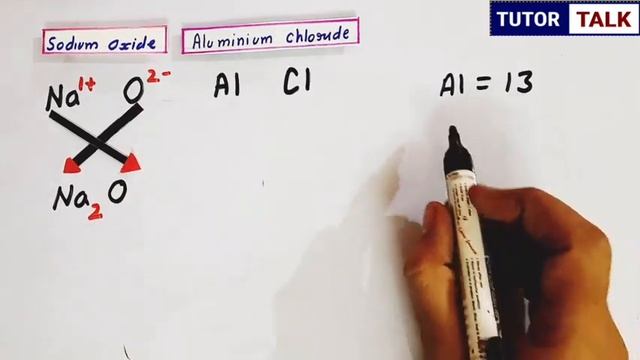 TUTOR TALK
Sodium oxide
Aluminium chloride
Na1+ O2-
Al Cl
Al = 13
Na2O